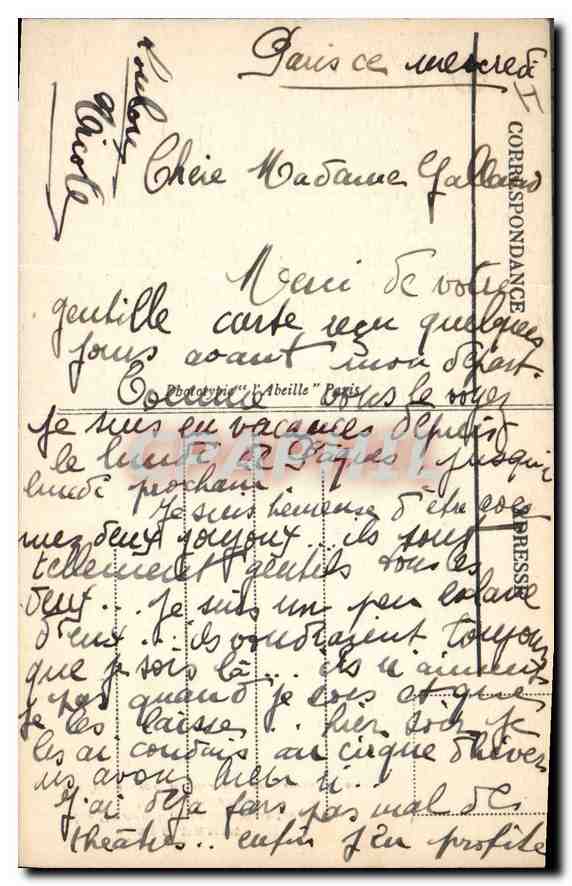 Paris ce mercredi
Chère Madame Galland
Merci de votre
gentille carte reçu quelques
jours avant mon départ.
Phototypie "l'Abeille" Paris
Comme vous le voyez
je suis en vacances depuis
le lundi de Pâques jusqu'a
lundi prochain
Je suis heureuse d'être avec
mes deux joujoux... ils sont
tellement gentils tous les
deux... Je suis un peu esclave
d'eux... ils voudraient toujours
que je sois là... ils n'aiment
pas quand je sors et que
je les laisse.. hier soir je
les ai conduis au cirque d'hiver
ns avons bien ri...
J'ai déjà fais pas mal de
théâtres.. enfin j'en profite
CORRESPONDANCE
ADRESSE
Nicole
CPAPHIL